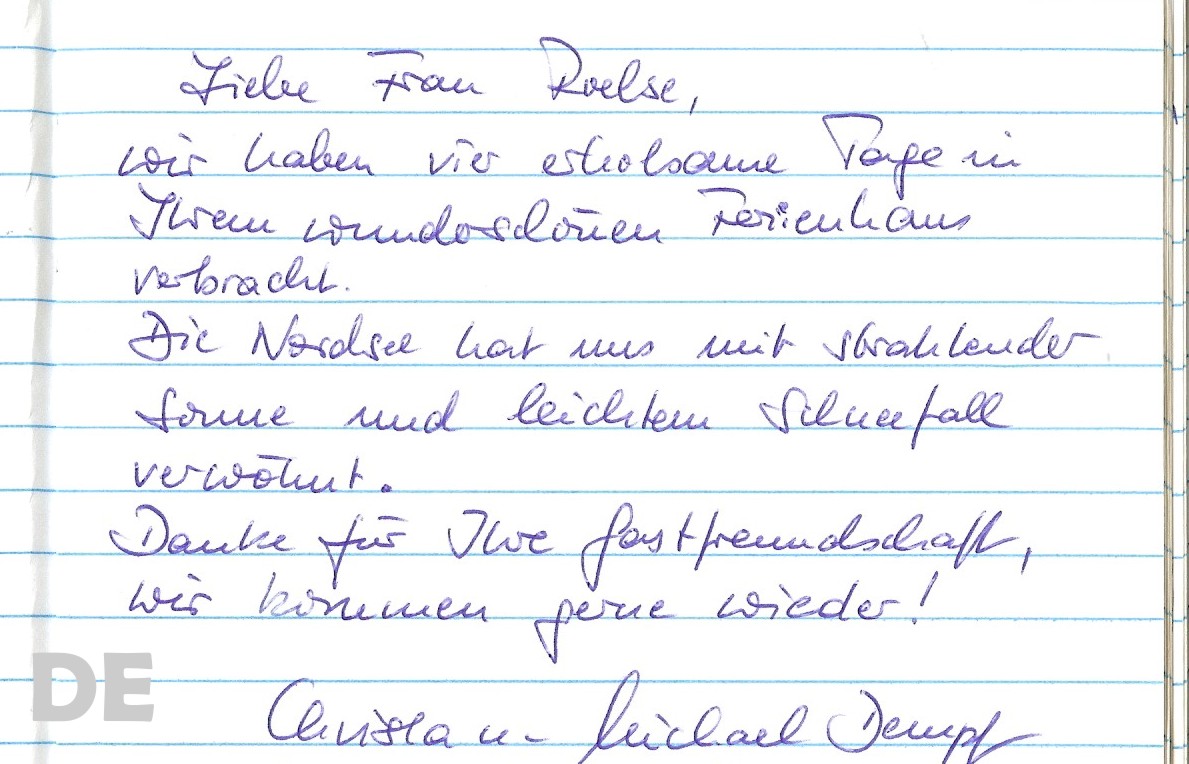 Liebe Frau Roelse,
wir haben vier erholsame Tage in
Ihrem wunderschönen Ferienhaus
verbracht.
Die Nordsee hat uns mit strahlender
Sonne und leichtem Schneefall
verwöhnt.
Danke für Ihre Gastfreundschaft,
wir kommen gerne wieder!
DE
Christa u. Michael Dempf